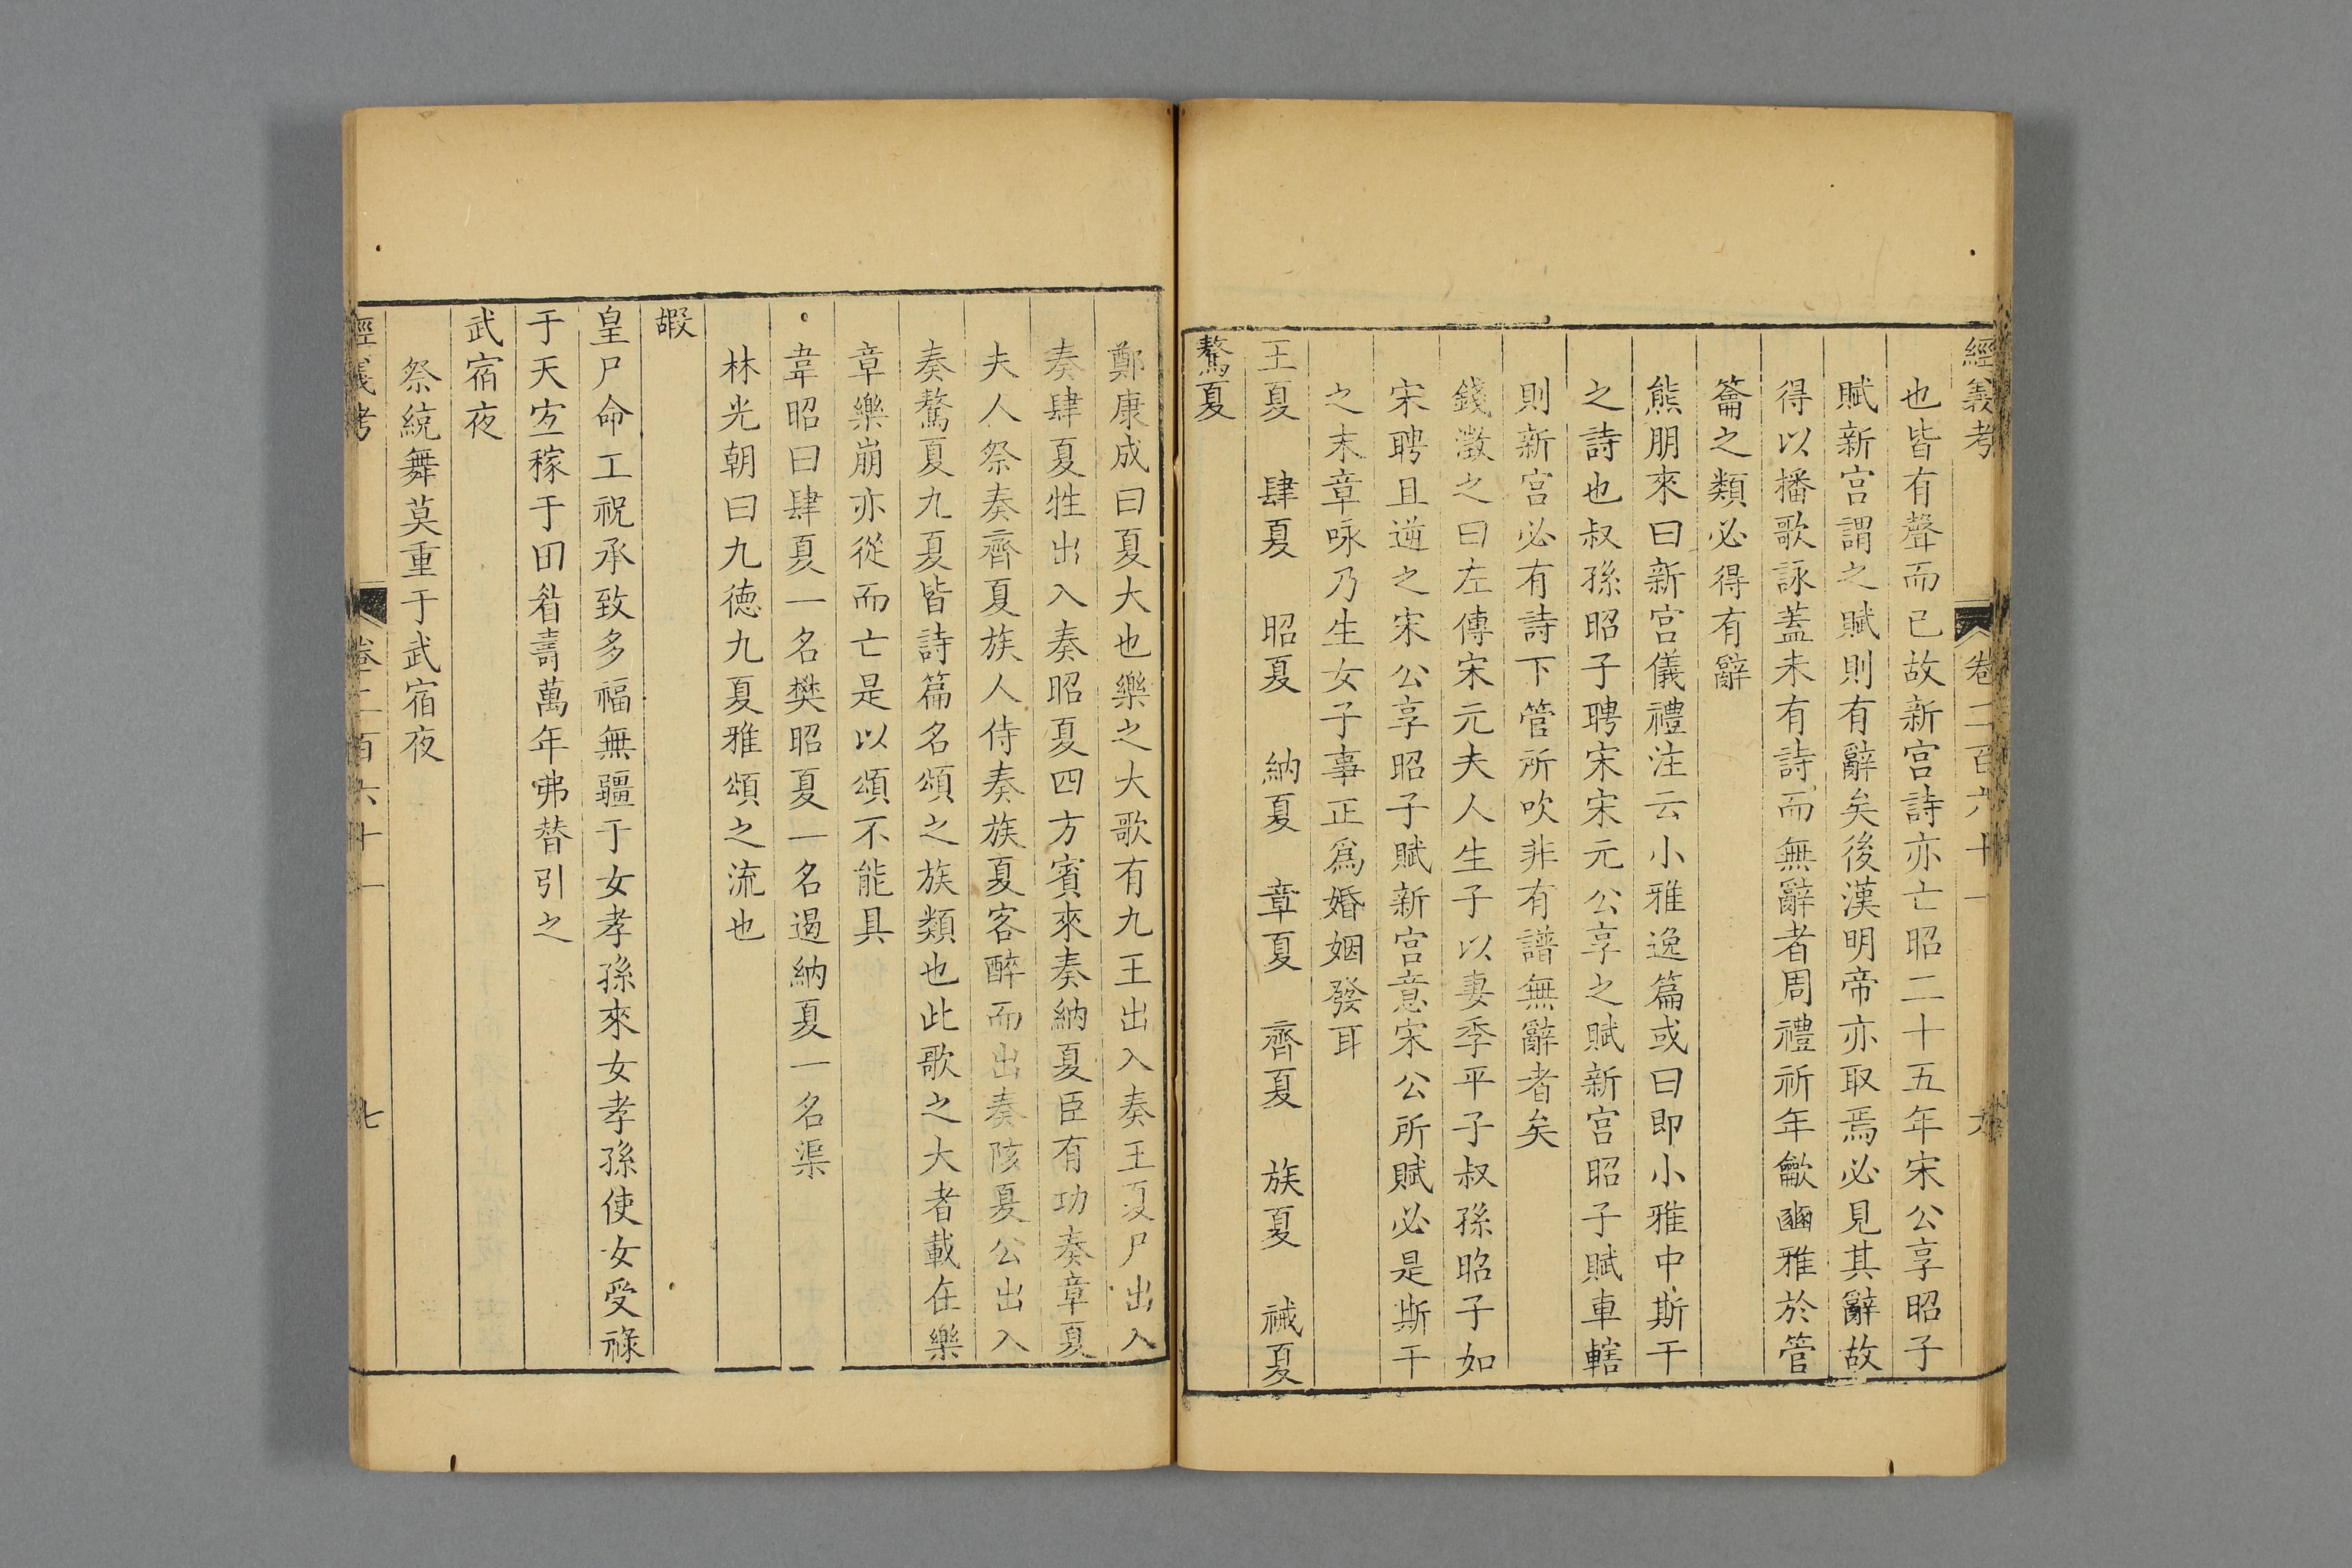 經義考 卷二百六十一 六
也皆有聲而已故新宮詩亦亡昭二十五年宋公享昭子
賦新宮謂之賦則有辭矣後漢明帝亦取焉必見其辭故
得以播歌詠蓋未有詩而無辭者周禮祈年龡豳雅於管
籥之類必得有辭
熊朋來曰新宮儀禮注云小雅逸篇或曰即小雅中斯干
之詩也叔孫昭子聘宋宋元公享之賦新宮昭子賦車轄
則新宮必有詩下管所吹非有譜無辭者矣
錢澂之曰左傳宋元夫人生子以妻季平子叔孫昭子如
宋聘且逆之宋公享昭子賦新宮意宋公所賦必是斯干
之末章咏乃生女子事正爲婚姻發耳
王夏 肆夏 昭夏 納夏 章夏 齊夏 族夏 祴夏
驁夏
鄭康成曰夏大也樂之大歌有九王出入奏王夏尸出入
奏肆夏牲出入奏昭夏四方賓來奏納夏臣有功奏章夏
夫人祭奏齊夏族人侍奏族夏客醉而出奏陔夏公出入
奏驁夏九夏皆詩篇名頌之族類也此歌之大者載在樂
章樂崩亦從而亡是以頌不能具
韋昭曰肆夏一名樊昭夏一名遏納夏一名渠
林光朝曰九德九夏雅頌之流也
嘏
皇尸命工祝承致多福無疆于女孝孫來女孝孫使女受祿
于天宐稼于田眉壽萬年弗替引之
武宿夜
祭統舞莫重于武宿夜
經義考 卷二百六十一 七